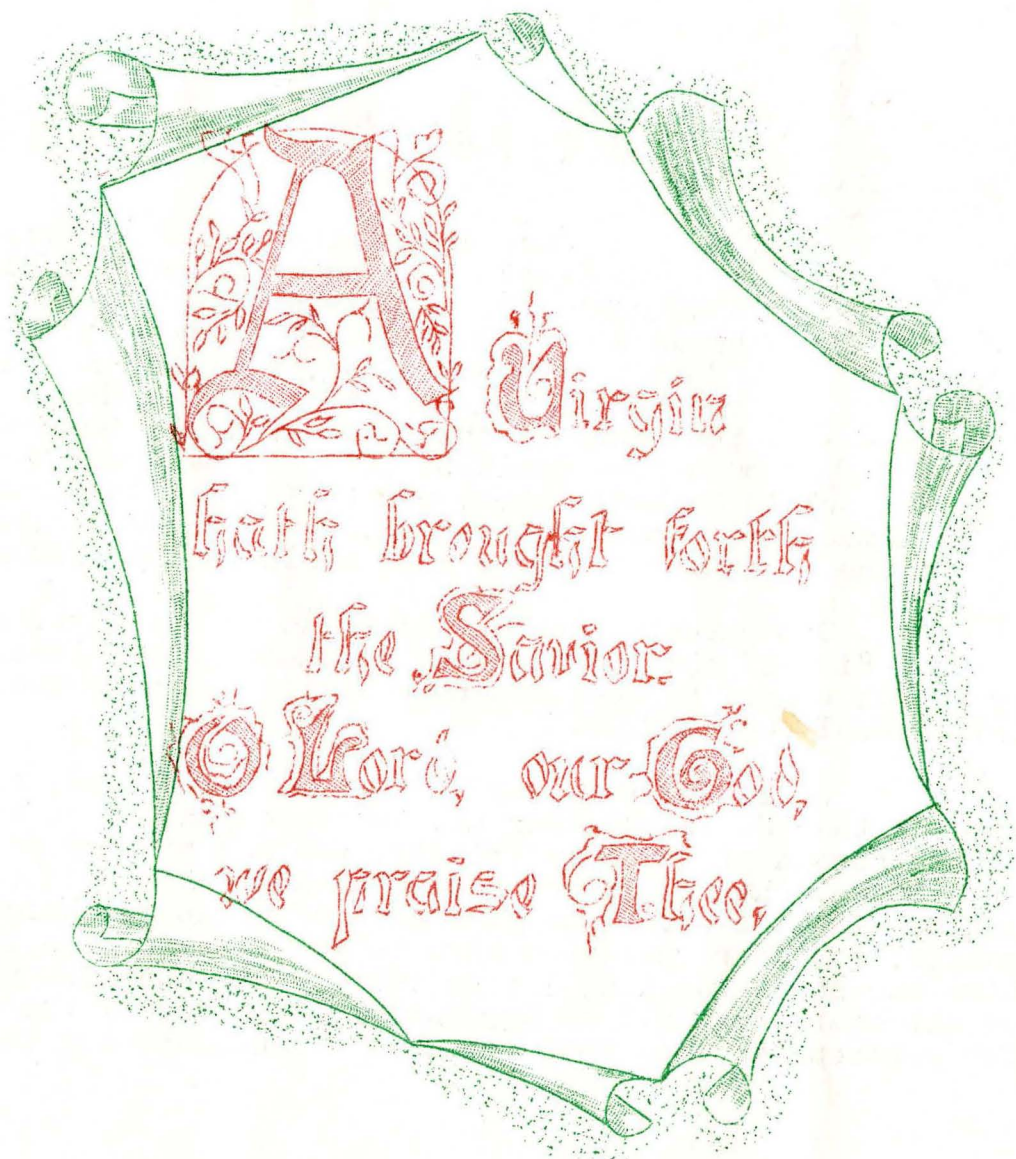 A Virgin
hath brought forth
the Savior.
O Lord, our God,
we praise Thee.